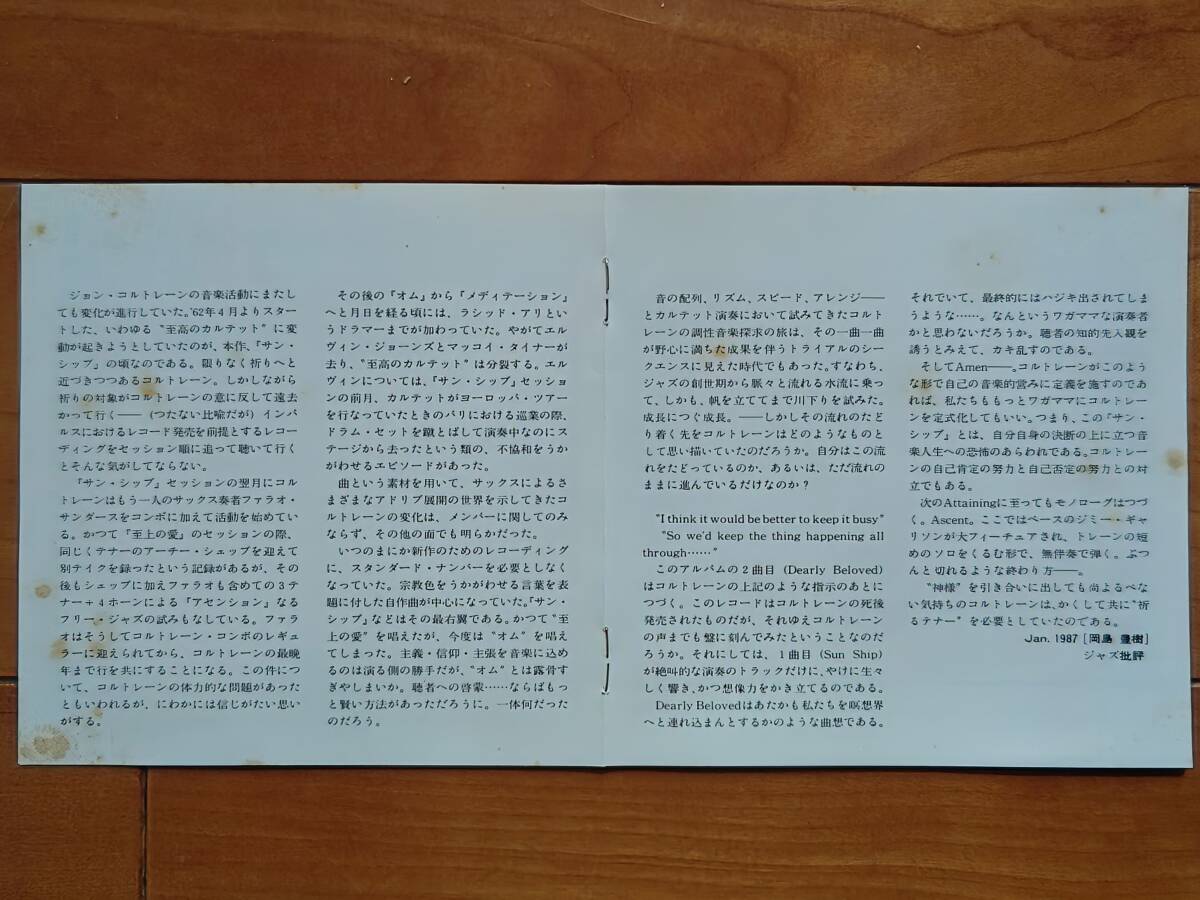 ジョン・コルトレーンの音楽活動にまたし
ても変化が進行していた。'62年4月よりスター
トした、いわゆる“至高のカルテット”に変
動が起きようとしていたのが、本作、『サン・
シップ』の頃なのである。限りなく祈りへと
近づきつつあるコルトレーン。しかしながら
祈りの対象がコルトレーンの意に反して遠去
かって行く――（つたない比喩だが）インパ
ルスにおけるレコード発売を前提とするレコー
ディングをセッション順に追って聴いて行く
とそんな気がしてならない。
『サン・シップ』セッションの翌月にコル
トレーンはもう一人のサックス奏者ファラオ・
サンダースをコンボに加えて活動を始めてい
る。かつて『至上の愛』のセッションの際、
同じくテナーのアーチー・シェップを迎えて
別テイクを録ったという記録があるが、その
後もシェップに加えファラオも含めての3テ
ナー+4ホーンによる『アセンション』なる
フリー・ジャズの試みもなしている。ファラ
オはそうしてコルトレーン・コンボのレギュ
ラーに迎えられてから、コルトレーンの最晩
年まで行を共にすることになる。この件につ
いて、コルトレーンの体力的な問題があった
ともいわれるが、にわかには信じがたい思い
がする。
その後の『オム』から『メディテーション』
へと月日を経る頃には、ラシッド・アリとい
うドラマーまでが加わっていた。やがてエル
ヴィン・ジョーンズとマッコイ・タイナーが
去り、“至高のカルテット”は分裂する。エル
ヴィンについては、『サン・シップ』セッショ
ンの前月、カルテットがヨーロッパ・ツアー
を行なっていたときのパリにおける巡業の際、
ドラム・セットを蹴とばして演奏中なのにス
テージから去ったという類の、不協和をうか
がわせるエピソードがあった。
曲という素材を用いて、サックスによるさ
まざまなアドリブ展開の世界を示してきたコ
ルトレーンの変化は、メンバーに関してのみ
ならず、その他の面でも明らかだった。
いつのまにか新作のためのレコーディング
に、スタンダード・ナンバーを必要としなく
なっていた。宗教色をうかがわせる言葉を表
題に付した自作曲が中心になっていた。『サン・
シップ』などはその最右翼である。かつて“至
上の愛”を唱えたが、今度は“オム”を唱え
てしまった。主義・信仰・主張を音楽に込め
るのは演る側の勝手だが、“オム”とは露骨す
ぎやしまいか。聴者への啓蒙……ならばもっ
と賢い方法があっただろうに。一体何だった
のだろう。
音の配列、リズム、スピード、アレンジ――
とカルテット演奏において試みてきたコルト
レーンの調性音楽探求の旅は、その一曲一曲
が野心に満ちた成果を伴うトライアルのシー
クエンスに見えた時代でもあった。すなわち、
ジャズの創世期から脈々と流れる水流に乗っ
て、しかも、帆を立ててまで川下りを試みた。
成長につぐ成長。――しかしその流れのたど
り着く先をコルトレーンはどのようなものと
して思い描いていたのだろうか。自分はこの流
れをたどっているのか、あるいは、ただ流れの
ままに進んでいるだけなのか？
“I think it would be better to keep it busy”
“So we'd keep the thing happening all
through……”
このアルバムの2曲目（Dearly Beloved）
はコルトレーンの上記のような指示のあとに
つづく。このレコードはコルトレーンの死後
発売されたものだが、それゆえコルトレーン
の声までも盤に刻んでみたということなのだ
ろうか。それにしては、1曲目（Sun Ship）
が絶叫的な演奏のトラックだけに、やけに生々
しく響き、かつ想像力をかき立てるのである。
Dearly Belovedはあたかも私たちを瞑想界
へと連れ込まんとするかのような曲想である。
それでいて、最終的にはハジキ出されてしま
うような……。なんというワガママな演奏者
かと思わないだろうか。聴者の知的先入観を
誘うとみえて、カキ乱すのである。
そしてAmen――。コルトレーンがこのよう
な形で自己の音楽的営みに定義を施すのであ
れば、私たちももっとワガママにコルトレー
ンを定式化してもいい。つまり、この『サン・
シップ』とは、自分自身の決断の上に立つ音
楽人生への恐怖のあらわれである。コルトレー
ンの自己肯定の努力と自己否定の努力との対
立でもある。
次のAttainingに至ってもモノローグはつづ
く。Ascent。ここではベースのジミー・ギャ
リソンが大フィーチュアされ、トレーンの短
めのソロをくるむ形で、無伴奏で弾く。ぶつ
んと切れるような終わり方――。
“神様”を引き合いに出しても尚よるべな
い気持ちのコルトレーンは、かくして共に“祈
るテナー”を必要としていたのである。
Jan. 1987［岡島 豊樹］
ジャズ批評